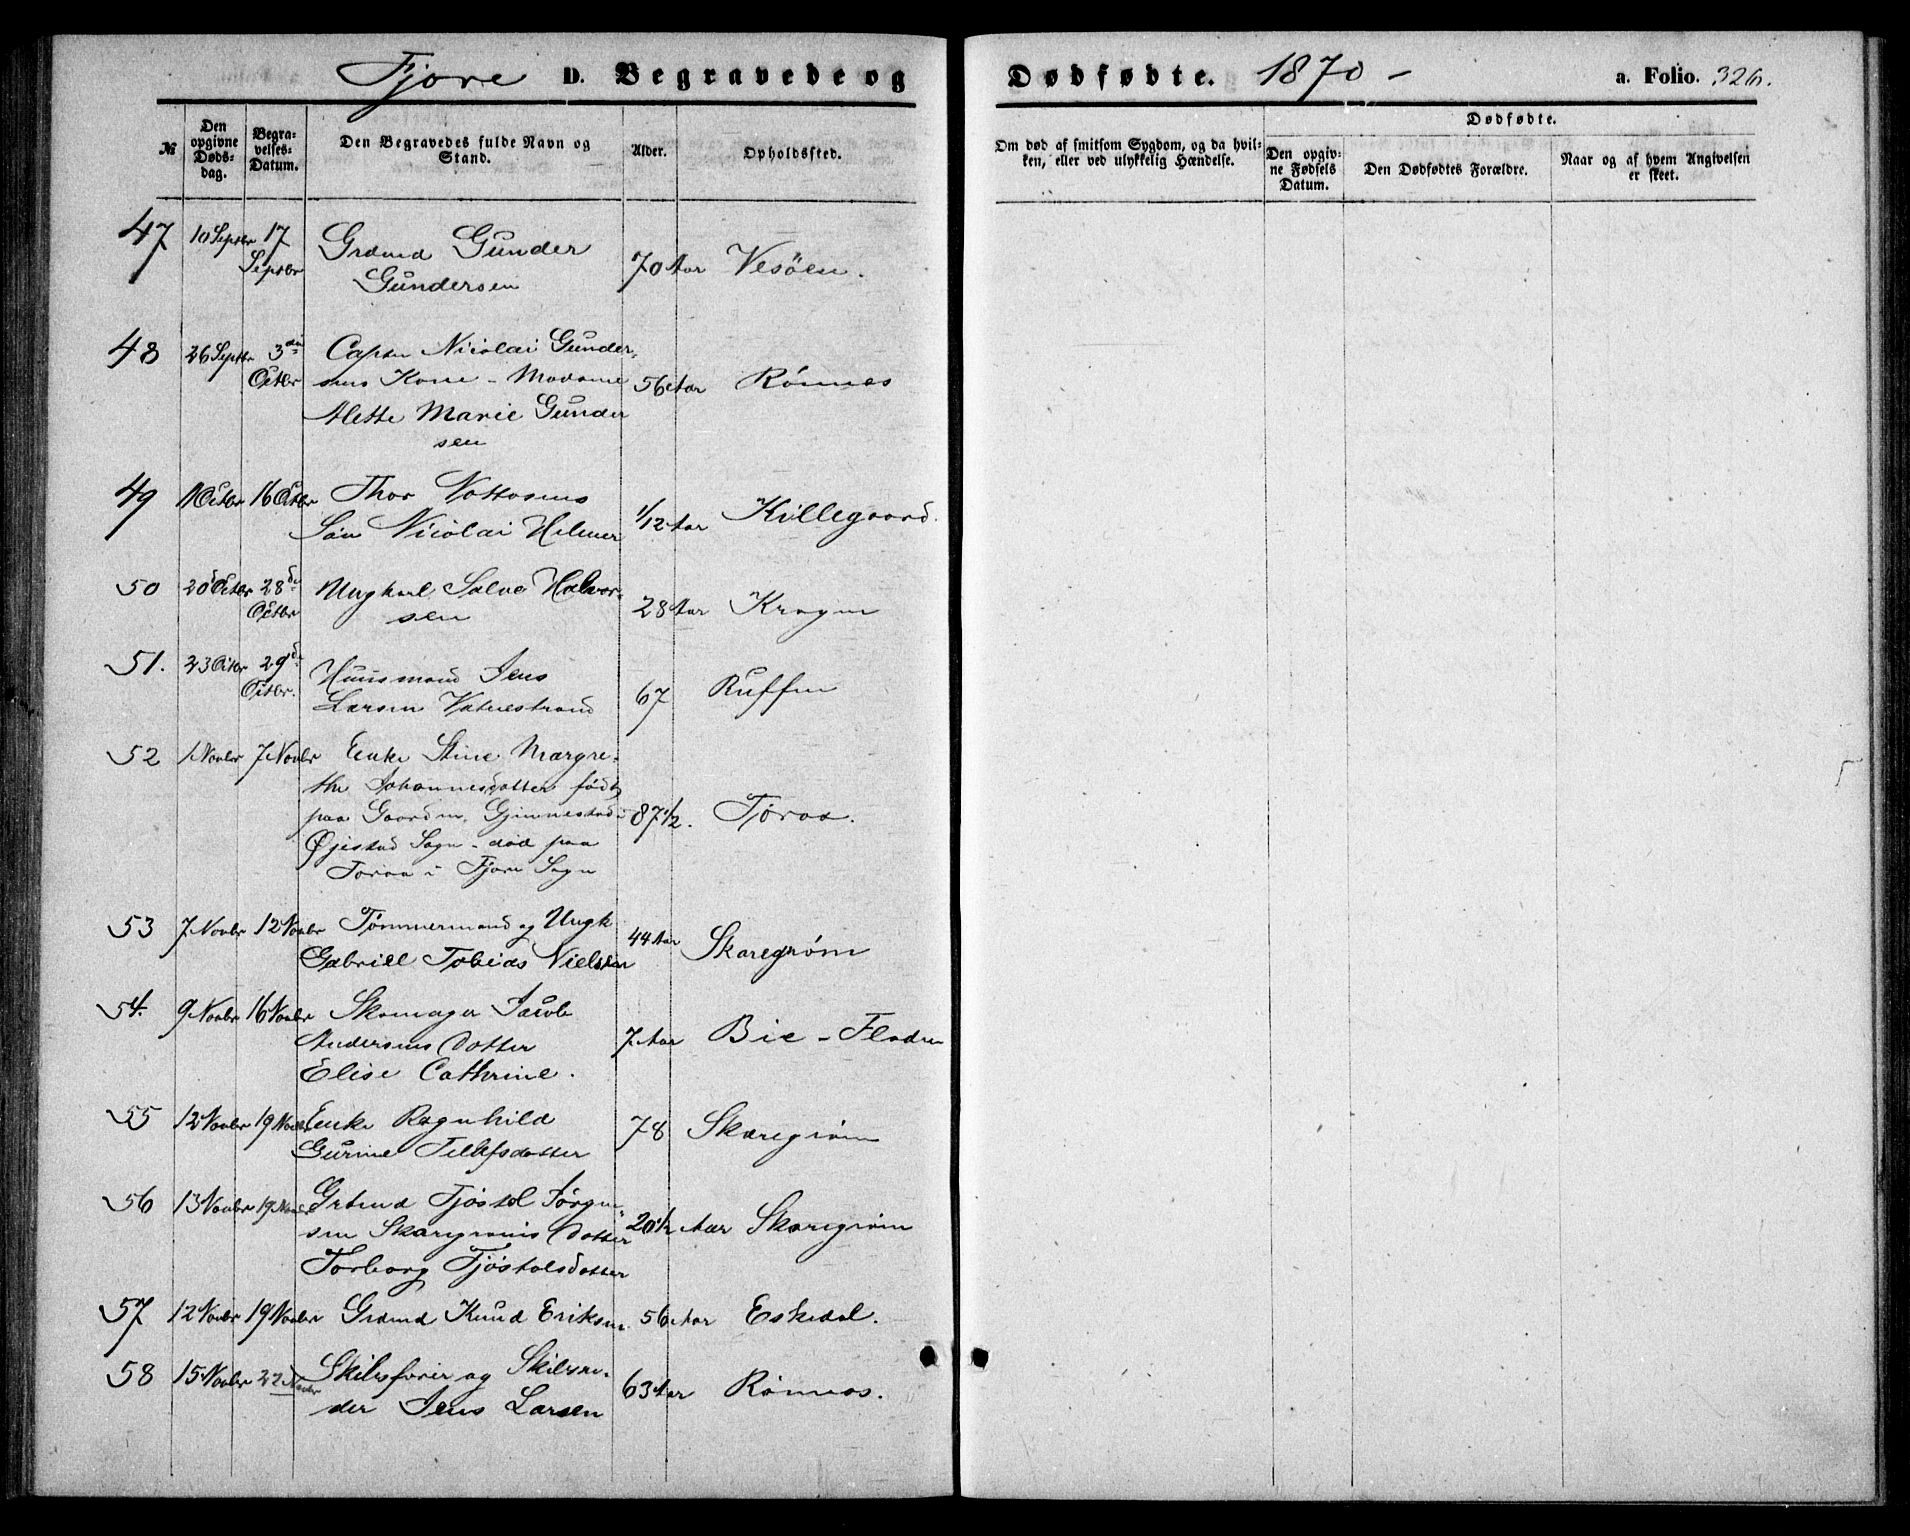 Fjære D. Begravede og Dødfødte. 1870 - a. Folio. 326.
№
Den opgivne Døds-dag.
Begra-velses-Datum.
Den Begravedes fulde Navn og Stand.
Alder.
Opholdssted.
Om død af smitsom Sygdom, og da hvil-
ken, eller ved ulykkelig Hændelse.
Dødfødte.
Den opgiv-
ne Fødsels
Datum.
Den Dødfødtes Forældre.
Naar og af hvem Angivelsen
er skeet.
47 10 Septbr 17 Septbr Grdmd Gunder
Gundersen 70 Aar Vesöen.
48 26 Septbr 3die Octbr Capten Nicolai Gunder-
sens Kone - Madame 56 Aar Rønnes
Alette Marie Gunder
sen
49 1 Octbr 16 Octbr Thor Nottosens
Søn Nicolai Helmer 1/12 Aar Killegaard.
50 20 Octbr 28de Octbr Ungkarl Salve Halvor-
sen 28 Aar Kragen
51. 23 Octbr 29de Octbr. Huusmand Jens
Larsen Vatnestrand 67 Ruffen
52 1 Novbr 7 Novbr Enke Stine Margre-
the Johannesdatter født
paa Gaarden Gjennestad i 87 1/2. Tøraa.
Øjestad Sogn - død paa
Toraa i Fjære Sogn
53 7 Novbr 12 Novbr Tømmermand og Ungk
Gabriel Tobias Nielsen 44 Aar Skaregrøm
54. 9 Novbr 16 Novbr Skomager Jacob
Andersens Datter 7 Aar Bie - Fladen
Elise Cathrine.
55 12 Novbr 19 Novbr Enke Ragnhild
Gurine Tellefsdatter 78 Skaregrøm
56 13 Novbr 19 Novbr Grbmd Tjøstol Jørgen
sen Skaregrøms Datter 20 1/2 Aar Skaregrøm
Torborg Tjøstolsdatter
57 12 Novbr 19 Novbr Grdmd Knud Eriksen 56 Aar Eskedal.
58 15 Novbr 22 Novbr Skibsfører og Skibsre-
der Jens Larsen 63 Aar Rønnes.